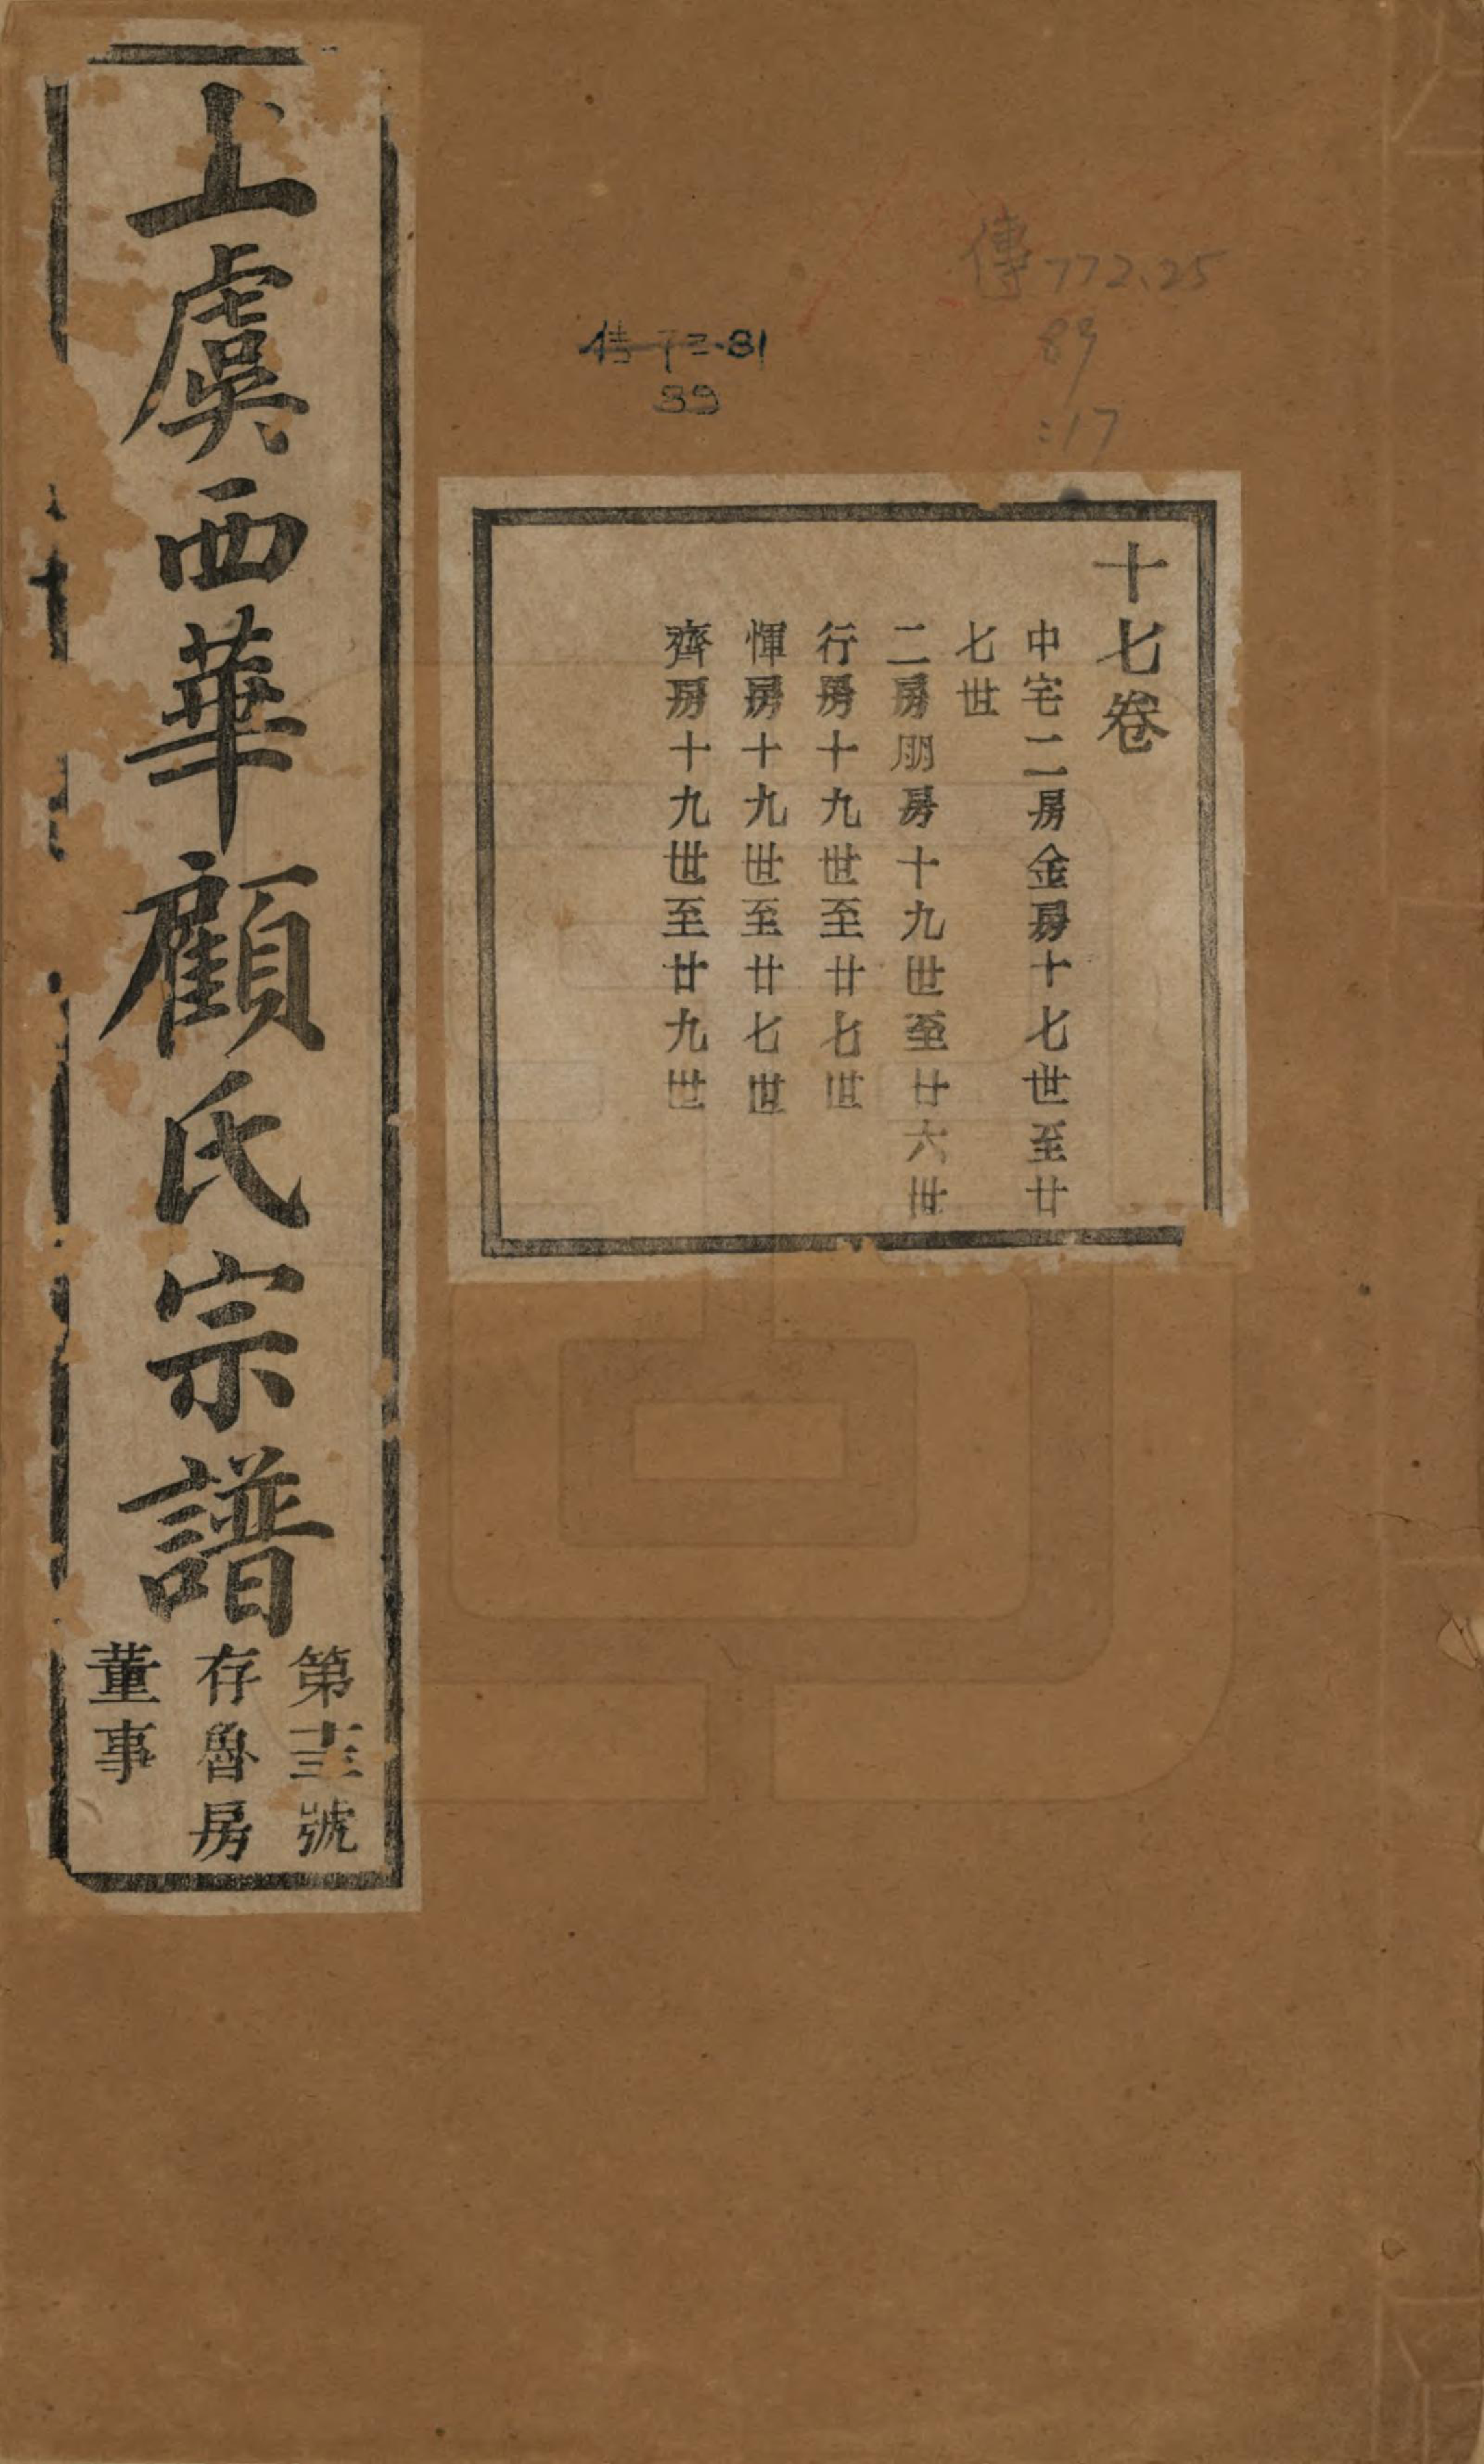 傳772.25
89
:17
32.81
39
十七卷
中宅二房金房十七世至廿
七世
二房朋房十九世至廿六世
行房十九世至廿七世
惲房十九世至廿七世
齊房十九世至廿九世
上虞西華顧氏宗譜
第十三號
存魯房
董事